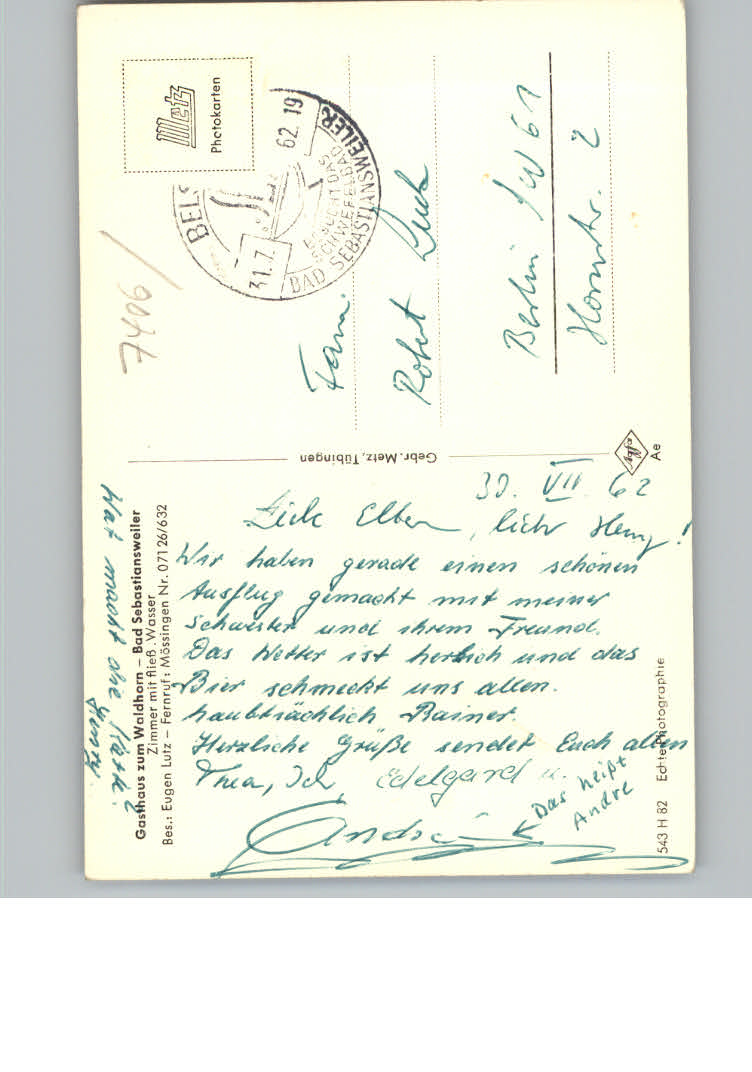 Gasthaus zum Waldhorn – Bad Sebastiansweiler
Zimmer mit fließ. Wasser
Bes.: Eugen Lutz – Fernruf: Mössingen Nr. 07126/632
30. VII. 62
Liebe Eltern, lieber Henry!
Wir haben gerade einen schönen
Ausflug gemacht mit meiner
Schwester und ihrem Freund.
Das Wetter ist herrlich und das
Bier schmeckt uns allen.
haubtsächlich Rainer.
Herzliche Grüße sendet Euch allen
Thea, Ich, Edelgard u.
André
Das heißt
Andre
Wat macht die
Henry
543 H 82 Echte Photographie
Gebr. Metz, Tübingen
Agfa
Ae
Metz
Photokarten
BELS
31.7. 62. 19
BESUCHT DAS
SCHWEFELBAD
BAD SEBASTIANSWEILER
7406/
Fam.
Robert
Berlin SW 61
Hornstr. 2